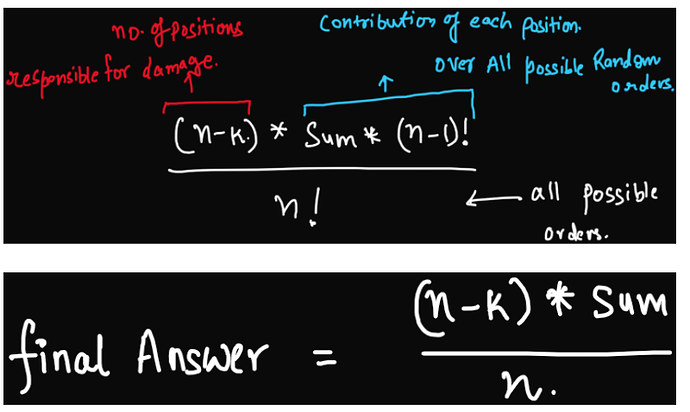 no. of positions
responsible for damage.
Contribution of each Position.
over All possible Random
orders.
(n-K) * Sum * (n-1)!
n!
all possible
orders.
final Answer =
(n-K) * Sum
n.